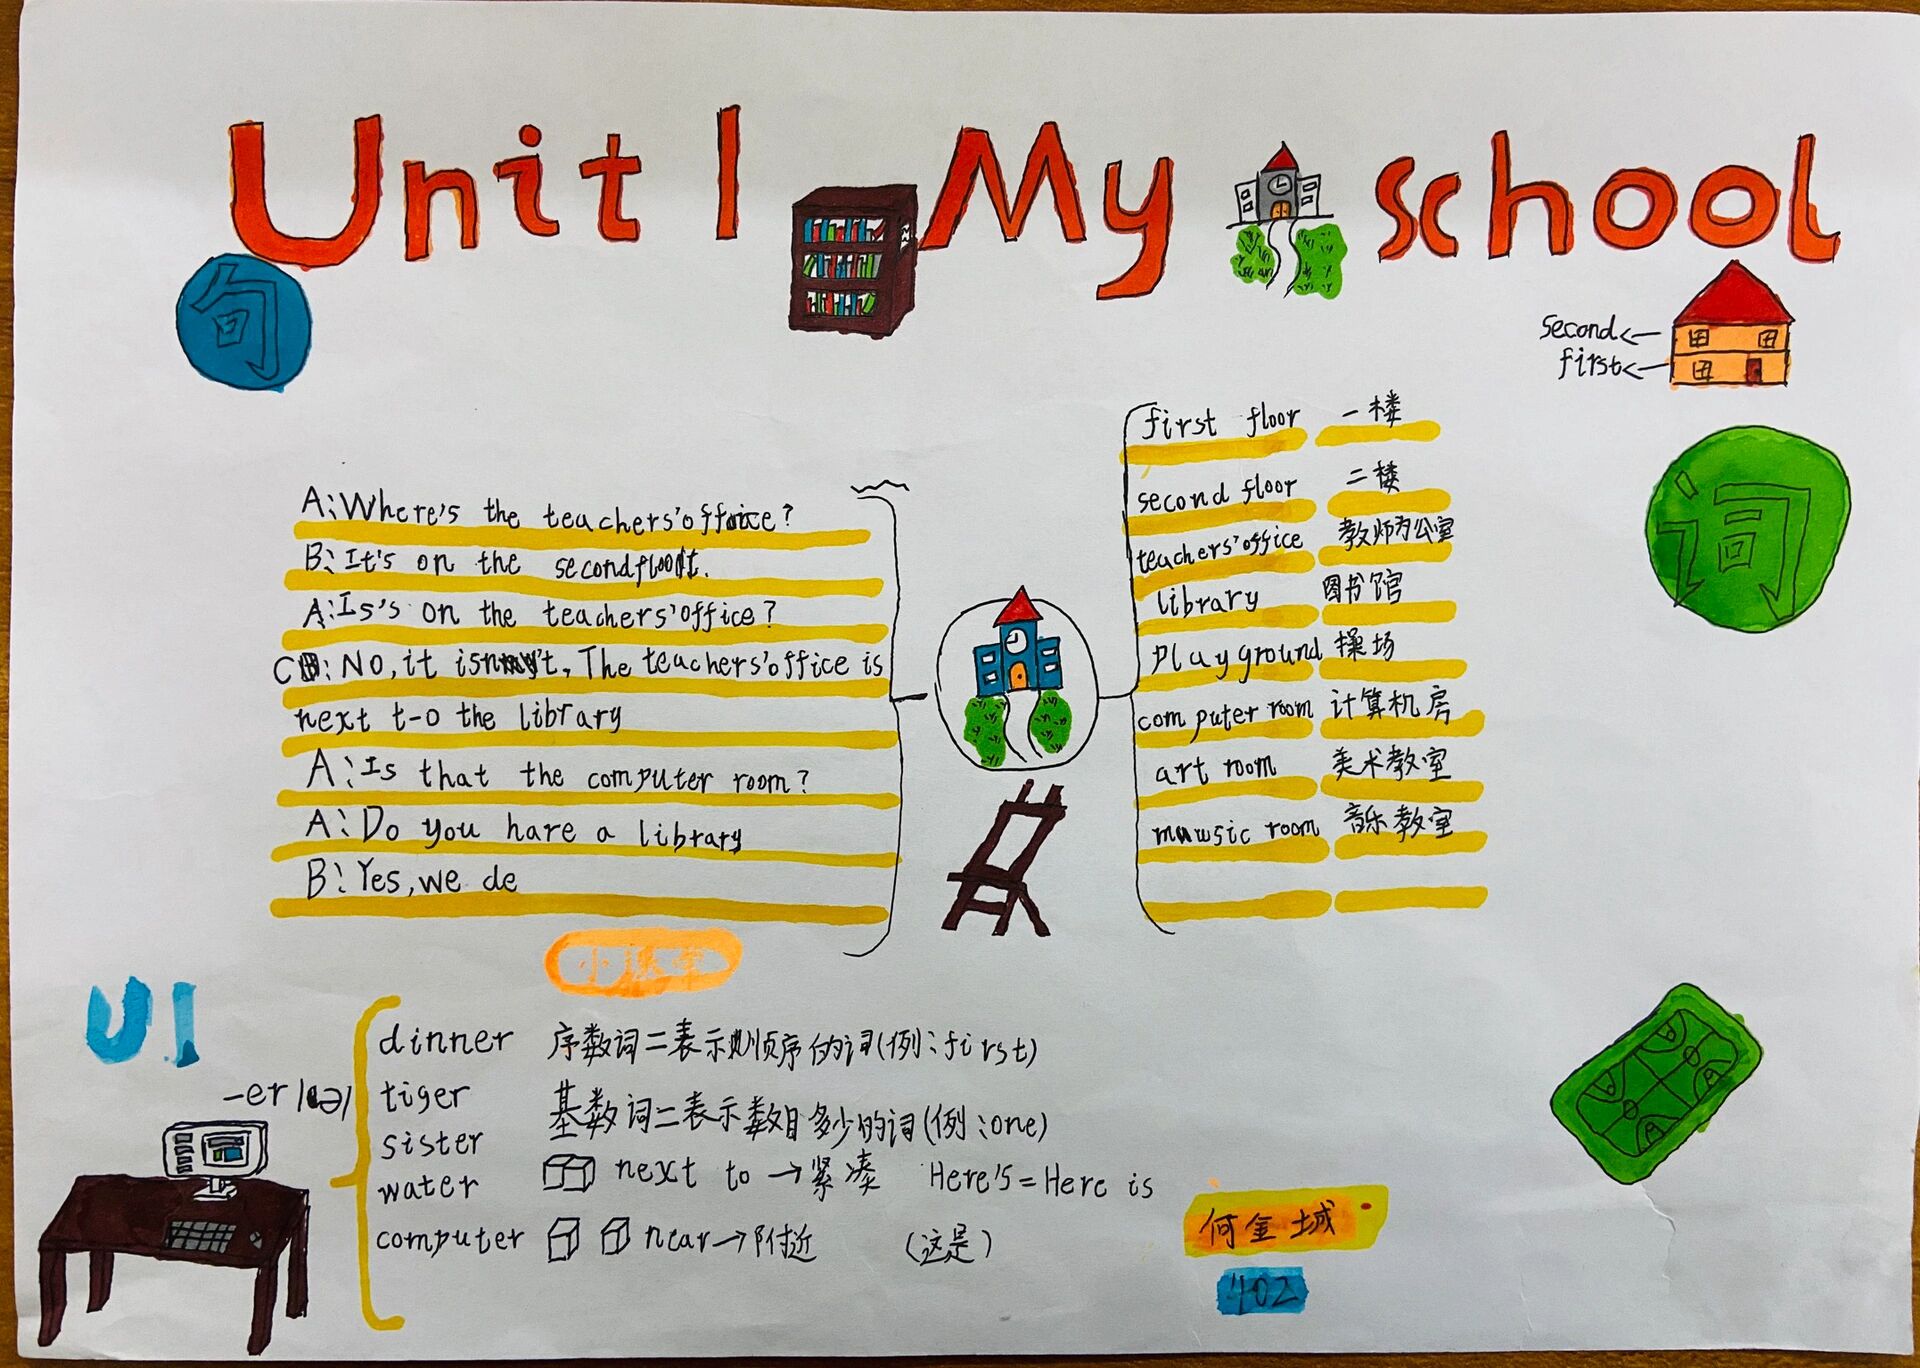 Unit 1 My school
句
second
first
词
A:Where's the teachers'office?
B:It's on the second floor.
A:Is's on the teachers'office?
C:No,it isn't,The teachers'office is
next t-o the library
A:Is that the computer room?
A:Do you hare a library
B:Yes,we de
first floor 一楼
second floor 二楼
teachers'office 教师办公室
library 图书馆
playground 操场
computer room 计算机房
art room 美术教室
music room 音乐教室
U1
-er
dinner
tiger
sister
water
computer
序数词二表示顺序的词(例:first)
基数词二表示数目多少的词(例:one)
next to→紧凑 Here's=Here is
near→附近 (这是)
何金城
402